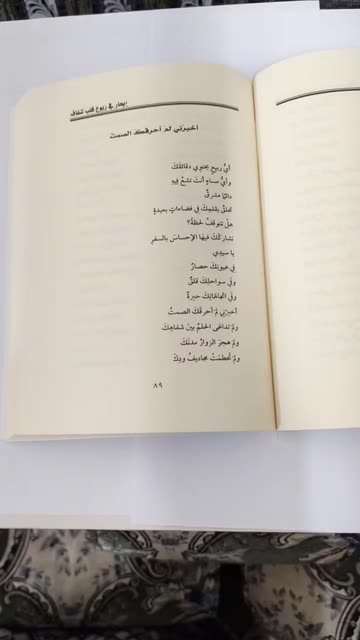 إبحار في ربوع قلب شفاف
أخبرني لم أحرقك الصمت
أيُّ ربيعٍ يحتوي دقائقَكَ
وأيُّ مساءٍ أنتَ تشعُّ فيهِ
دائماً مشرقٌ
تحلّقُ بقلبِكَ في فضاءاتٍ بعيدةٍ
هل تتوقفُ لحظةً؟
تشاركُكَ فيها الإحساسَ بالسفرِ
يا سيدي
في عيونِكَ حصارٌ
وفي سواحلِكَ قلقٌ
وفي اتجاهاتِكَ حيرةٌ
أخبرني لمَ أحرقَكَ الصمتُ
ولمَ تداعى الحلمُ بينَ شفاهِكَ
ولمَ هجرَ الزوارُ مدنَكَ
ولمَ تحطمتْ مجاديفُ ودِكَ
٨٩